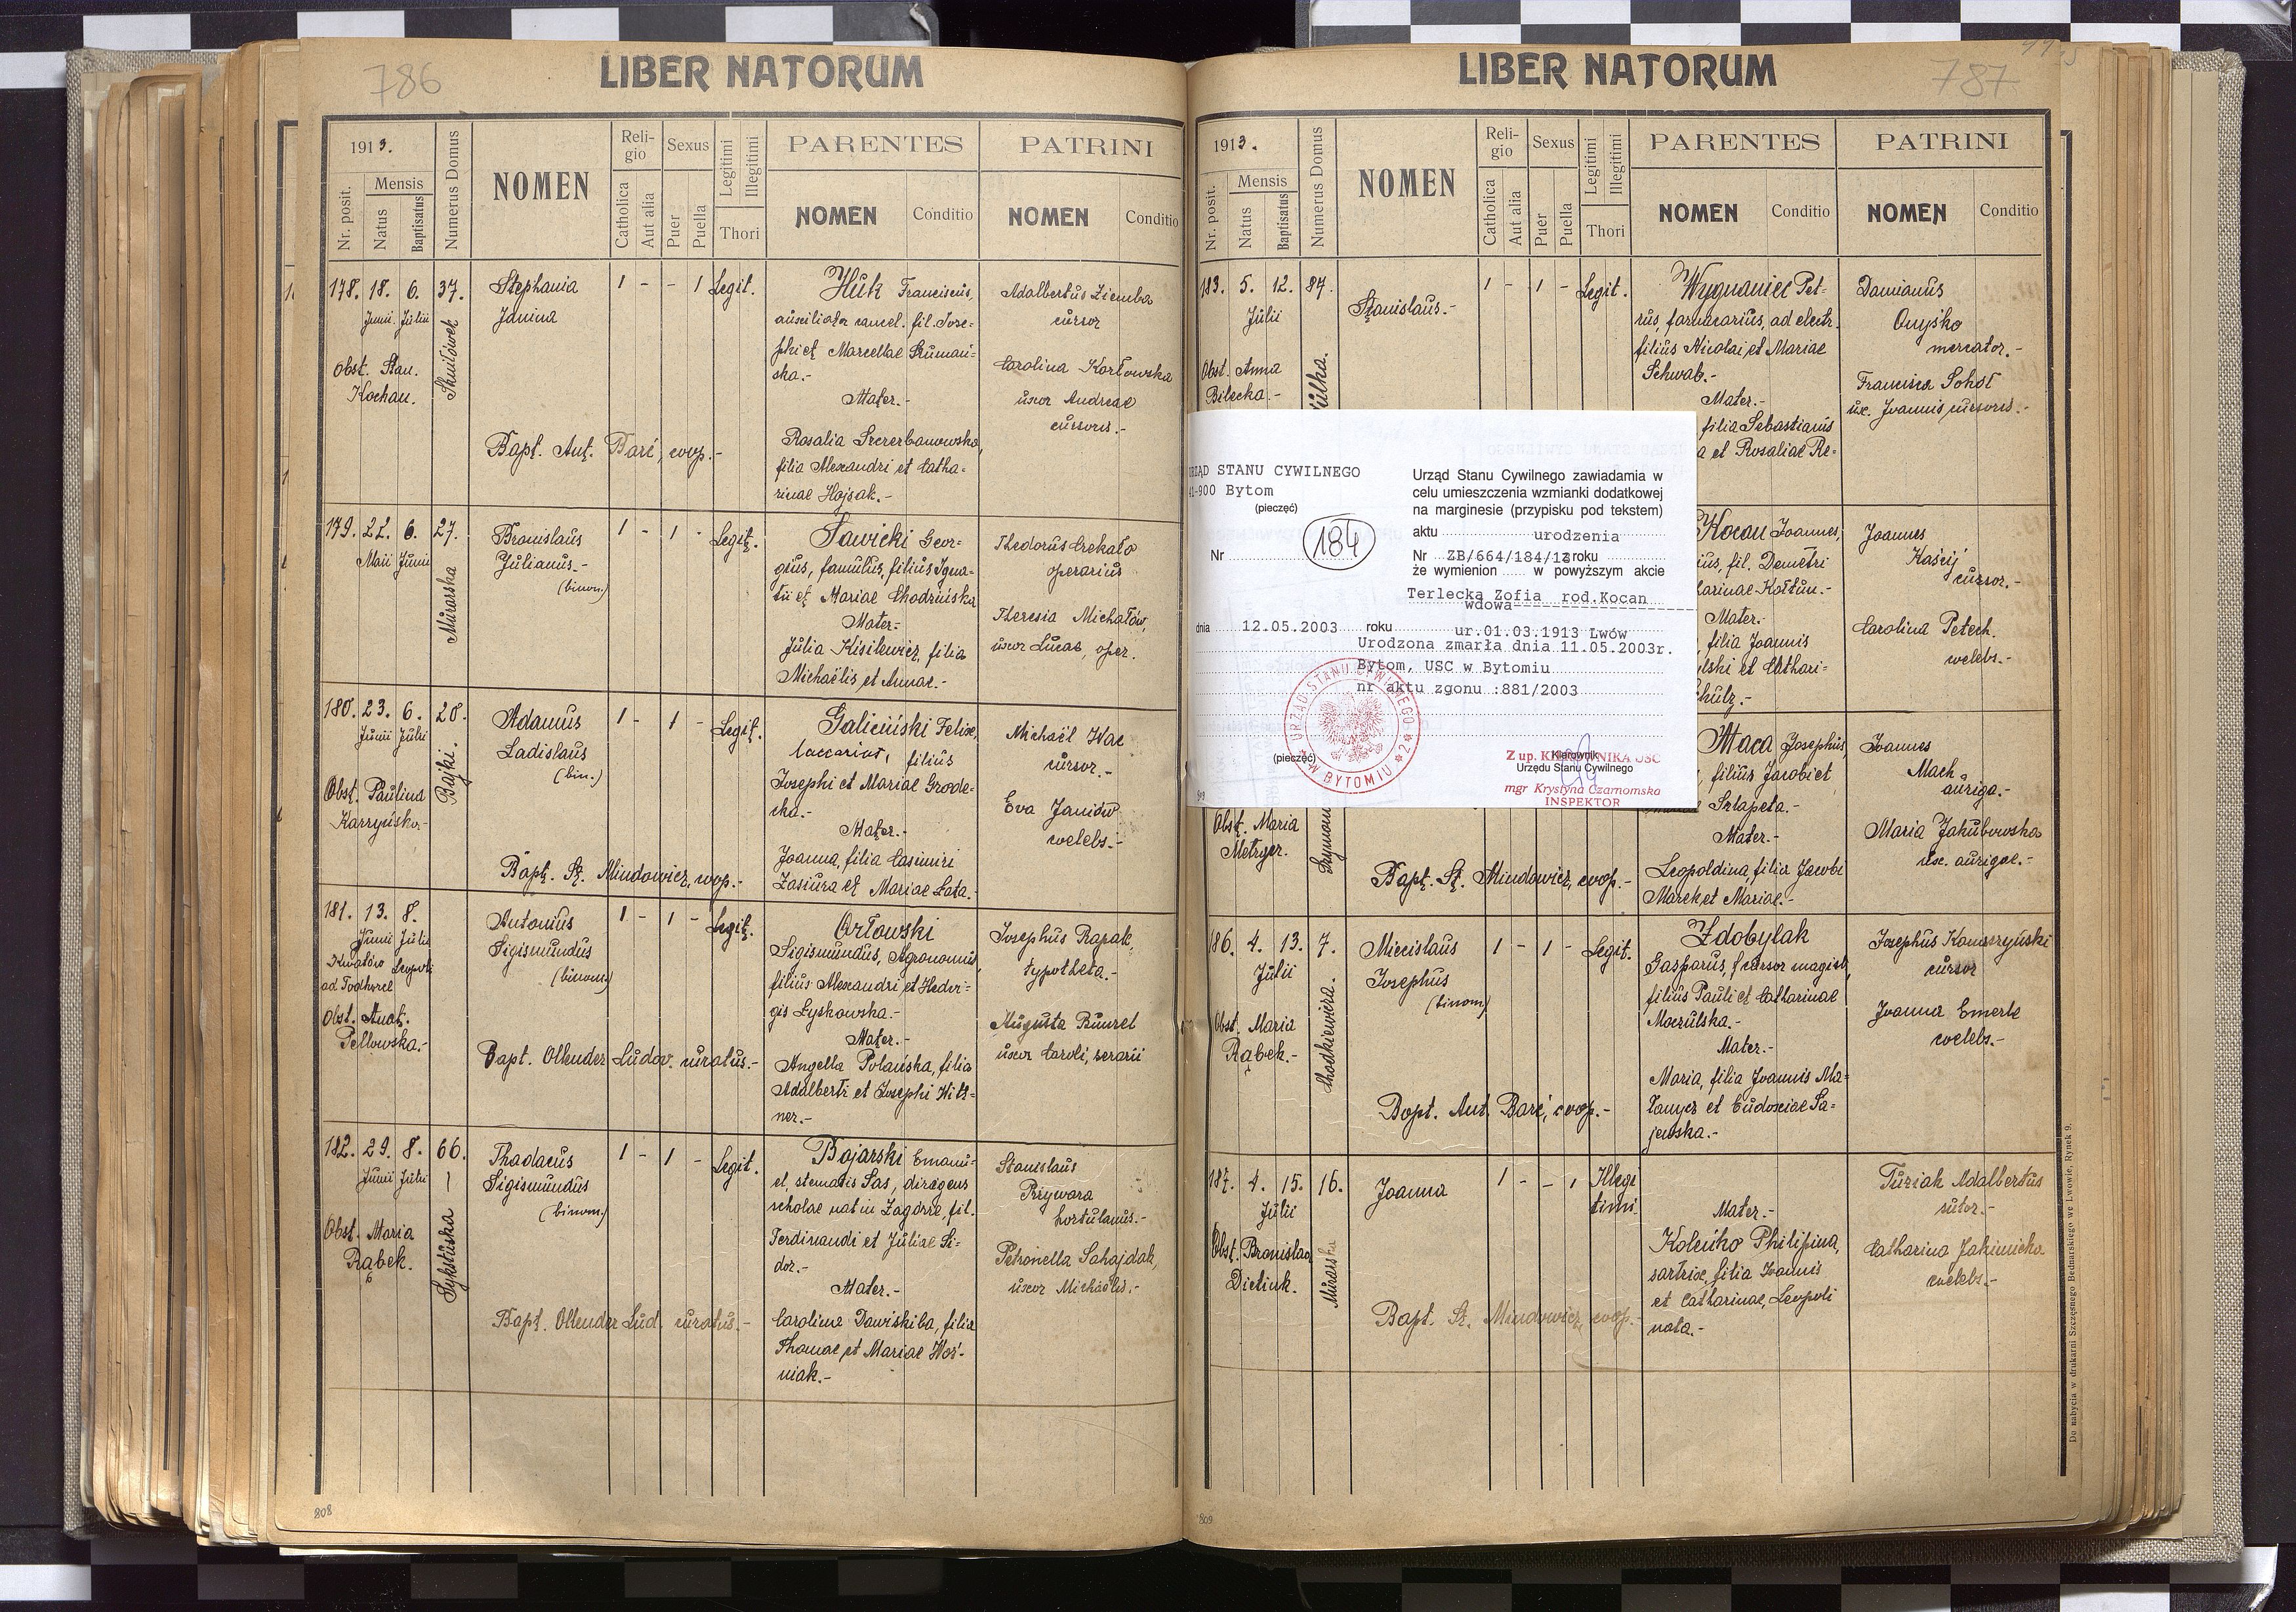 786
LIBER NATORUM
1913.
Nr. posit.
Mensis
Natus
Baptisatus
Numerus Domus
NOMEN
Religio
Catholica
Aut alia
Sexus
Puer
Puella
Legitimi
Illegitimi
Thori
PARENTES
NOMEN
Conditio
PATRINI
NOMEN
Conditio
178. 18. 6. 37.
Junii. Julii
Obst. Stan.
Kochan.
Stephania
Janina
1 - - 1 Legit.
Bapt. Ant. Barć, coop.-
Huk Franciscus,
auxiliator cancel. fil. Jose=
phi et Marcellae Szumań=
ska.-
Mater.-
Rosalia Szczerbanowska,
filia Alexandri et Catha=
rinae Hojsak.-
Adalbertus Ziemba
cursor
Carolina Kozłowska
uxor Andreae
cursoris.-
179. 22. 6. 27.
Maii Junii
Murarska
Bronislaus
Julianus.-
(binom.)
1 - 1 - Legit.
Sawicki Geor=
gius, famulus, filius Igna=
tii et Mariae Chodzińska
Mater.-
Julia Kisilewicz, filia
Michaëlis et Annae.-
Theodorus Czekało
operarius
Theresia Michałów,
uxor Lucae, oper.
180. 23. 6. 20.
Junii Julii
Bajki.
Obst. Paulina
Adamus
Ladislaus
(bin.)
1 - 1 - Legit.
Bapt. St. Mindowicz, coop.-
Galiciński Felix,
filius
Josephi et Mariae Grode=
cka.-
Mater.-
Joanna, filia Casimiri
Zasiura et Mariae Łata.-
Michaël Wac
cursor.-
Eva Janiów
coelebs.-
181. 13. 8.
Junii Julii
Leopoli
ad Podhorce
Obst. Anat.
Pellowska.-
Antonius
Sigismundus
(binom.)
1 - 1 - Legit.
Bapt. Ollender Ludov. curatus.-
Orłowski
Sigismundus, Agronomus,
filius Alexandri et Hedvi=
gis Łyskowska.-
Mater.-
Angella Polańska, filia
Adalberti et Josephi Wits=
ner.-
Josephus Rapak,
typotheta.-
Augusta Bünzel
uxor Caroli, serarii
182. 29. 8. 66.
Junii Julii
Sykstuska
Obst. Maria
Rąbek.
Thadaeus
Sigismundus
(binom.)
1 - 1 - Legit.
Bapt. Ollender Lud. curatus.-
Bojarski Emanu=
el, stematis Sas, dirigens
scholae nat in Zagórze, fil.
Ferdinandi et Juliae Si=
dor.-
Mater.-
Carolina Dawiskiba, filia
Thomae et Mariae Woź=
niak.-
Stanislaus
Przywara
hortulanus.-
Petronella Sahajdak,
uxor Michaëlis.-
808
787
LIBER NATORUM
1913.
Nr. posit.
Mensis
Natus
Baptisatus
Numerus Domus
NOMEN
Religio
Catholica
Aut alia
Sexus
Puer
Puella
Legitimi
Illegitimi
Thori
PARENTES
NOMEN
Conditio
PATRINI
NOMEN
Conditio
183. 5. 12. 87.
Julii
Obst. Anna
Bilecka.-
Stanislaus.-
1 - 1 - Legit.
Wygnaniec Pet=
rus, fornacarius, ad electr.
filius Nicolai et Mariae
Schwab.-
Mater.-
filia Sebastianus
a et Rosaliae Re=
Damianus
Onyśko
mercator.-
Francisca Sokoł
ux. Joannis cursoris.-
URZĄD STANU CYWILNEGO
41-900 Bytom
(pieczęć)
Nr
184
dnia 12.05.2003 roku
(pieczęć)
Urząd Stanu Cywilnego zawiadamia w
celu umieszczenia wzmianki dodatkowej
na marginesie (przypisku pod tekstem)
aktu urodzenia
Nr ZB/664/184/13 roku
że wymienion w powyższym akcie
Terlecka Zofia rod.Kocan
wdowa
ur.01.03.1913 Lwów
Urodzona zmarła dnia 11.05.2003r.
Bytom, USC w Bytomiu
nr aktu zgonu :881/2003
URZĄD STANU CYWILNEGO
W BYTOMIU
2
Z up. KIEROWNIKA USC
Kierownik
Urzędu Stanu Cywilnego
mgr Krystyna Czarnomska
INSPEKTOR
Kocan Joannes,
fil. Demetri
Kołtun.-
Mater.-
filia Joannis
Joannes
Kaścij
cursor.-
Carolina Petech.
coelebs.-
Obst. Maria
Metzger.
Bapt. St. Mindowicz, coop.-
Maca Josephus,
filius Jacobi et
Szlapeta.-
Mater.-
Leopoldina, filia Jacobi
Marek et Mariae.-
Joannes
Mach
auriga.-
Maria Jakubowska
ux. aurigae.-
186. 4. 13. 7.
Julii
Chodkiewicza.
Obst. Maria
Rąbek.-
Miecislaus
Josephus
(binom)
1 - 1 - Legit.
Bapt. Ant. Barć, coop.-
Zdobylak
Gasparus, cursor magist,
filius Pauli et Catharinae
Moczulska.-
Mater.-
Maria, filia Joannis Ma=
łanycz et Eudoxiae Sa=
jewska.-
cursor
Joanna Emerle
coelebs.-
187. 4. 15. 16.
Julii
Murarska
Obst. Bronislaa
Dietiuk.
Joanna
1 - - 1 Illegi
timi.
Bapt. St. Mindowicz, coop.-
Mater.-
Koleńko Philipina,
sartrix, filia Joannis
et Catharinae, Leopoli
nata.-
Tuziak Adalbertus
sutor.-
Catharina Jakimicka
coelebs.-
809
Do nabycia w drukarni Szczęsnego Bednarskiego we Lwowie, Rynek 9.